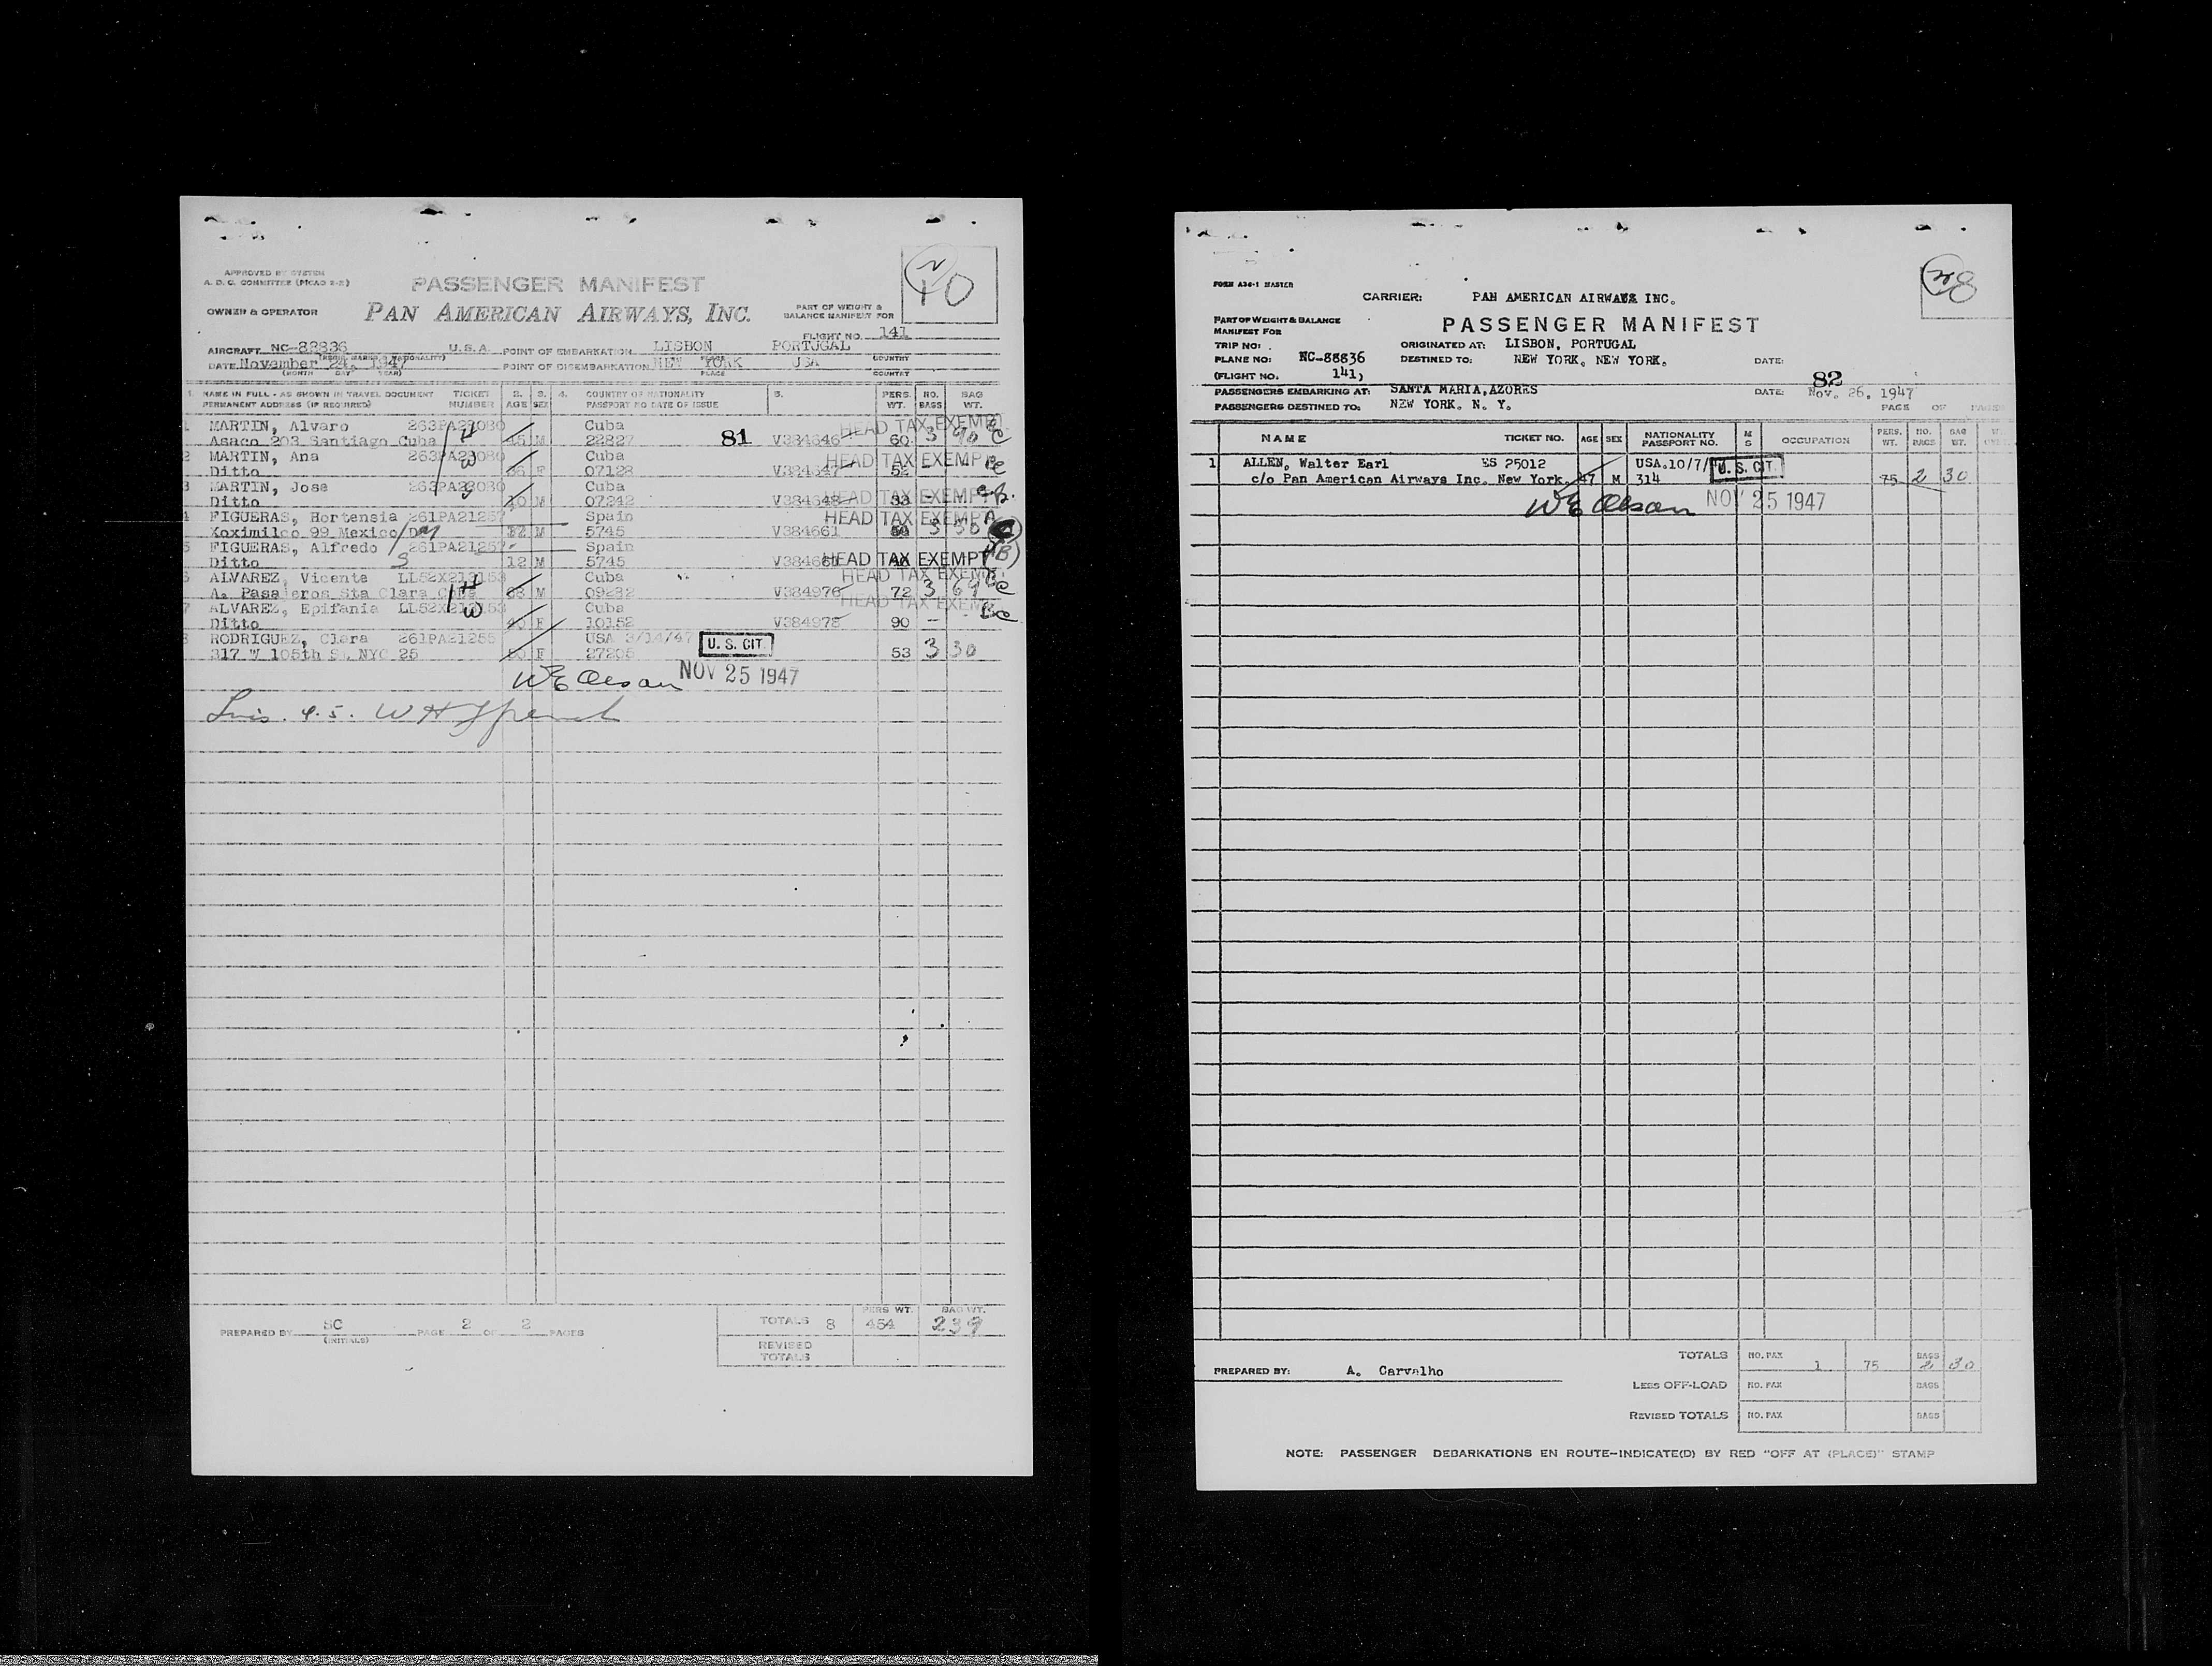 APPROVED BY SYSTEM
A. D. C. COMMITTEE (PICAO 2-2)
PASSENGER MANIFEST
10
OWNER & OPERATOR
PAN AMERICAN AIRWAYS, INC.
PART OF WEIGHT &
BALANCE MANIFEST FOR
FLIGHT NO. 141
AIRCRAFT NC-88836 U.S.A. POINT OF EMBARKATION LISBON PORTUGAL
DATE November 24, 1947 POINT OF DISEMBARKATION NEW YORK USA
(MONTH DAY YEAR) PLACE COUNTRY
1. NAME IN FULL - AS SHOWN IN TRAVEL DOCUMENT TICKET 2. 3. 4. COUNTRY OF NATIONALITY 5. PERS. NO. BAG
PERMANENT ADDRESS (IF REQUIRED) NUMBER AGE SEX PASSPORT NO DATE OF ISSUE WT. BAGS WT.
1 MARTIN, Alvaro 263PA23080 H Cuba HEAD TAX EXEMPT
Asaco 203 Santiago Cuba 45 M 22827 81 V384646 60 3 90
2 MARTIN, Ana 263PA23080 W Cuba HEAD TAX EXEMPT
Ditto 36 F 07128 V384647 52
3 MARTIN, Jose 263PA23080 S Cuba HEAD TAX EXEMPT
Ditto 10 M 07242 V384648 33
4 FIGUERAS, Hortensia 261PA21257 Spain HEAD TAX EXEMPT
Xoximilco 99 Mexico/D M 5745 V384661 3 30
5 FIGUERAS, Alfredo 261PA21257 Spain
Ditto S 12 M 5745 HEAD TAX EXEMPT
6 ALVAREZ, Vicente LL52X212153 H Cuba HEAD TAX EXEMPT
A. Pasajeros Sta Clara Cuba M 09282 V384976 72 3 69
7 ALVAREZ, Epifania LL52X212153 W Cuba HEAD TAX EXEMPT
Ditto 40 F 10152 V384975 90 —
8 RODRIGUEZ, Clara 261PA21255 USA 3/14/47 U. S. CIT.
317 W 105th St. NYC 25 F 27205 53 3 30
W E Olson NOV 25 1947
PREPARED BY SC PAGE 2 OF 2 PAGES
(INITIALS)
PERS WT. BAG WT.
TOTALS 8 454 239
REVISED
TOTALS
FORM A36-1 MASTER
CARRIER: PAN AMERICAN AIRWAYS INC.
PART OF WEIGHT & BALANCE
MANIFEST FOR
PASSENGER MANIFEST
TRIP NO: ORIGINATED AT: LISBON, PORTUGAL
PLANE NO: NC-88836 DESTINED TO: NEW YORK, NEW YORK. DATE:
(FLIGHT NO. 141)
82
PASSENGERS EMBARKING AT: SANTA MARIA, AZORES DATE: Nov. 26, 1947
PASSENGERS DESTINED TO: NEW YORK. N. Y. PAGE OF PAGES
NAME TICKET NO. AGE SEX NATIONALITY PASSPORT NO. M S OCCUPATION PERS. WT. NO. BAGS BAG WT.
1 ALLEN, Walter Earl ES 25012 USA.10/7/ U. S. CIT.
c/o Pan American Airways Inc. New York. 47 M 314 75 2 30
W E Olson NOV 25 1947
TOTALS NO. PAX 1 75 BAGS 2 30
PREPARED BY: A. Carvalho
LESS OFF-LOAD NO. PAX BAGS
REVISED TOTALS NO. PAX BAGS
NOTE: PASSENGER DEBARKATIONS EN ROUTE—INDICATE(D) BY RED "OFF AT (PLACE)" STAMP